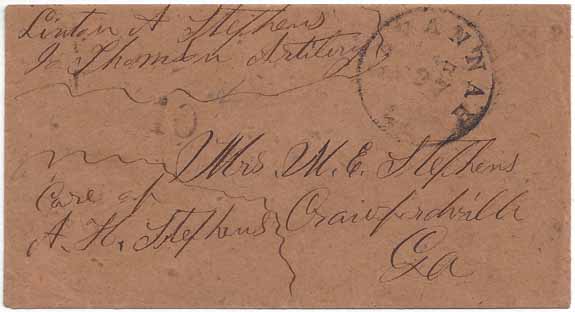 Linton A Stephens
Jo Thomson Artilery
SAVANNAH
27
10
Mrs. M. E. Stephens
Care of
A. H. Stephens
Crawfordville
Ga